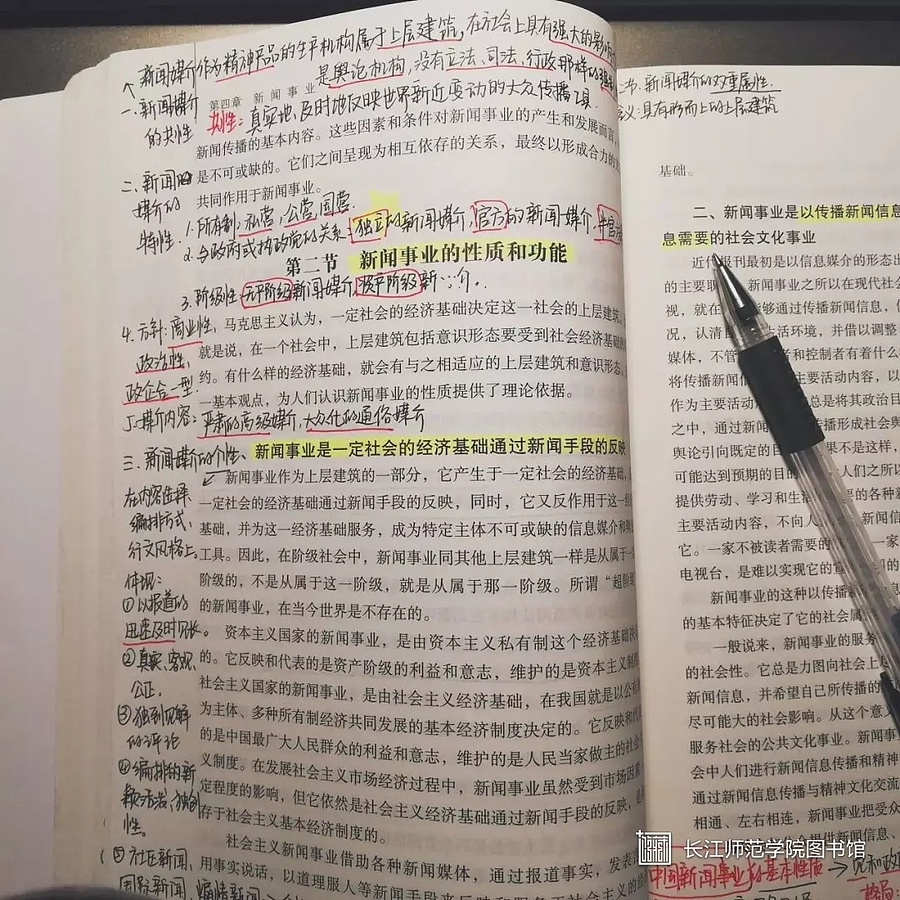 新闻媒介作为精神产品的生产机构属于上层建筑,在社会上具有强大的影响
是舆论机构,没有立法、司法、行政那样的强制
第四章 新闻事业
一、新闻媒介的共性
共性:真实地、及时地反映世界新近变动的大众传播工具.
新闻传播的基本内容。这些因素和条件对新闻事业的产生和发展而言,
是不可或缺的。它们之间呈现为相互依存的关系,最终以形成合力的
共同作用于新闻事业。
二、新闻媒介的特性.
1.所有制:私营,公营,国营.
2.与政府或执政党的关系:独立的新闻媒介,官方的新闻媒介,半官方
第二节 新闻事业的性质和功能
3.阶级性:无产阶级新闻媒介,资产阶级新…介.
4.方针:商业性,
政治性,
政企合一型.
马克思主义认为,一定社会的经济基础决定这一社会的上层建筑。
就是说,在一个社会中,上层建筑包括意识形态要受到社会经济基础的
约。有什么样的经济基础,就会有与之相适应的上层建筑和意识形态。
一基本观点,为人们认识新闻事业的性质提供了理论依据。
5.媒介内容:严肃的高级媒介,大众化的通俗媒介
三.新闻媒介的个性
、新闻事业是一定社会的经济基础通过新闻手段的反映
新闻事业作为上层建筑的一部分,它产生于一定社会的经济基础,
一定社会的经济基础通过新闻手段的反映,同时,它又反作用于这一经
基础,并为这一经济基础服务,成为特定主体不可或缺的信息媒介和
工具。因此,在阶级社会中,新闻事业同其他上层建筑一样是从属于一
阶级的,不是从属于这一阶级,就是从属于那一阶级。所谓“超阶
的新闻事业,在当今世界是不存在的。
资本主义国家的新闻事业,是由资本主义私有制这个经济基础决
的。它反映和代表的是资产阶级的利益和意志,维护的是资本主义制
社会主义国家的新闻事业,是由社会主义经济基础,在我国就是以公有
为主体、多种所有制经济共同发展的基本经济制度决定的。它反映和代
的是中国最广大人民群众的利益和意志,维护的是人民当家做主的社会
义制度。在发展社会主义市场经济过程中,新闻事业虽然受到市场因素
定程度的影响,但它依然是社会主义经济基础通过新闻手段的反映,是
存于社会主义基本经济制度的。
社会主义新闻事业借助各种新闻媒体,通过报道事实,发表
用事实说话,以道理服人等新闻手段来反映和服务于社会主义的经
在内容选择
编排方式,
行文风格上
体现:
①以报道的
迅速及时见长。
②真实、客观、
公正.
③独到见解
的评论
④编排的新
颖活泼,独创
性。
⑤社区新闻,
国际新闻,煽情新闻
二节:新闻媒介的双重属性.
义:具有形而上的上层建筑
基础。
二、新闻事业是以传播新闻信息
息需要的社会文化事业
近代报刊最初是以信息媒介的形态出
的主要 新闻事业之所以在现代社会
视,就在 能够通过传播新闻信息,
况,认清 生活环境,并借以调整
媒体,不管 者和控制者有着什么
将传播新闻信 主要活动内容,以
作为主要活动 总是将其政治目
之中,通过新闻 传播形成社会舆
舆论引向既定的目 果不是这样,
可能达到预期的目 人们之所以
提供劳动、学习和生活 要的各种新
主要活动内容,不向人 新闻信
它。一家不被读者需要的 一家
电视台,是难以实现它的宣 的
新闻事业的这种以传播新
的基本特征决定了它的社会属
一般说来,新闻事业的服务
的社会性。它总是力图向社会上
新闻信息,并希望自己所传播的
尽可能大的社会影响。从这个意义
服务社会的公共文化事业。新闻事
会中人们进行新闻信息传播和精神
通过新闻传播与精神文化交流
相通、左右相连,新闻事业把受众
会提供新闻信息、
中国新闻事业的基本性质
长江师范学院图书馆